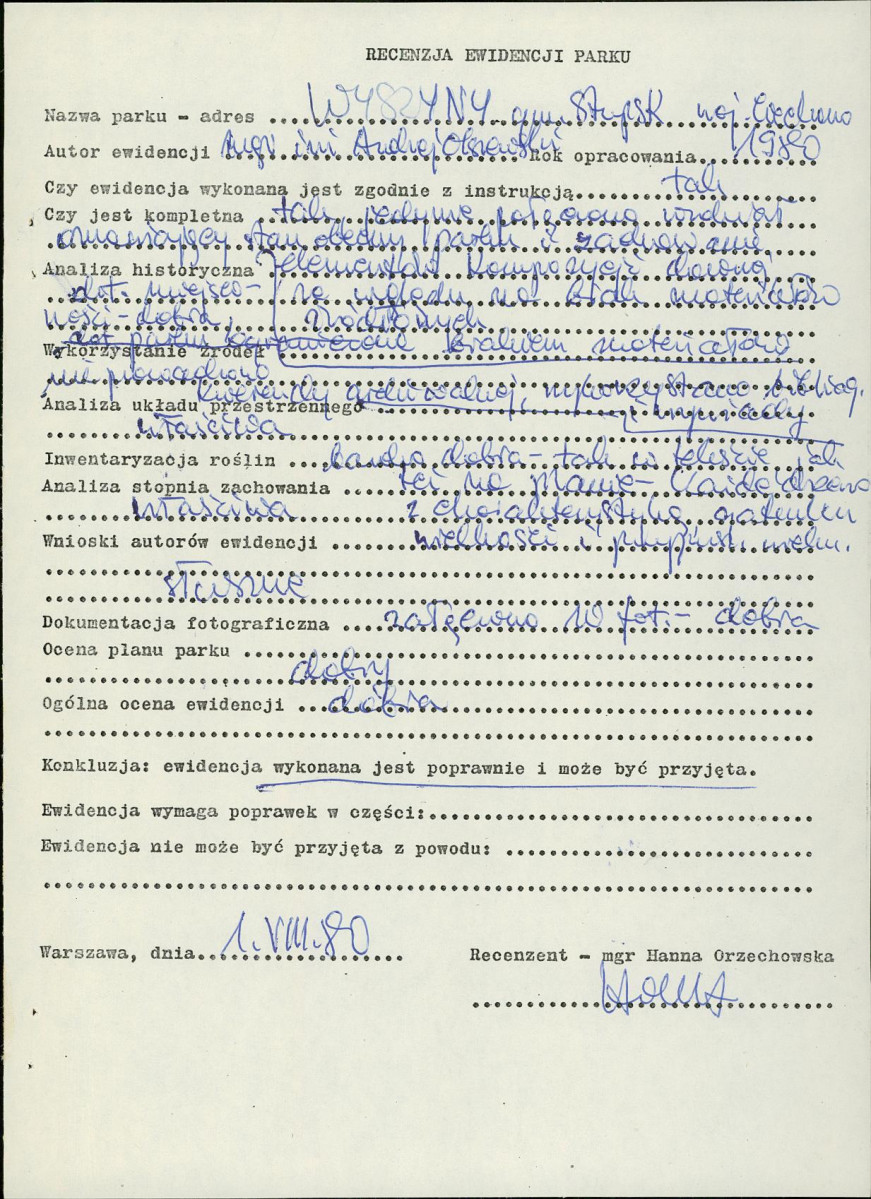 RECENZJA EWIDENCJI PARKU
Nazwa parku - adres WYSZYNY gm. Stupsk woj. Ciechanów
Autor ewidencji mgr inż Andrzej Rok opracowania 1980
Czy ewidencja wykonana jest zgodnie z instrukcją tak
Czy jest kompletna tak, jedynie
stan obecny parku i zachowanie
Analiza historyczna elementów kompozycji
dot. miejsco- ze względu na brak materiałów
ności - dobra, źródłowych
dot parku ograniczone brakiem materiałów
Wykorzystanie źródeł
nie prowadzono
kwerendy archiwalnej, wykorzystano bibliog.
Analiza układu przestrzennego i wywiady
właściwa
Inwentaryzacja roślin bardzo dobra - tak w tekście jak
Analiza stopnia zachowania też na planie - każde drzewo
właściwa z charakterystyką gatunku
Wnioski autorów ewidencji wielkości i
słuszne
Dokumentacja fotograficzna załączono 10 fot. - dobra
Ocena planu parku
dobry
Ogólna ocena ewidencji dobra
Konkluzja: ewidencja wykonana jest poprawnie i może być przyjęta.
Ewidencja wymaga poprawek w części:
Ewidencja nie może być przyjęta z powodu:
Warszawa, dnia 1.VIII.80
Recenzent - mgr Hanna Orzechowska